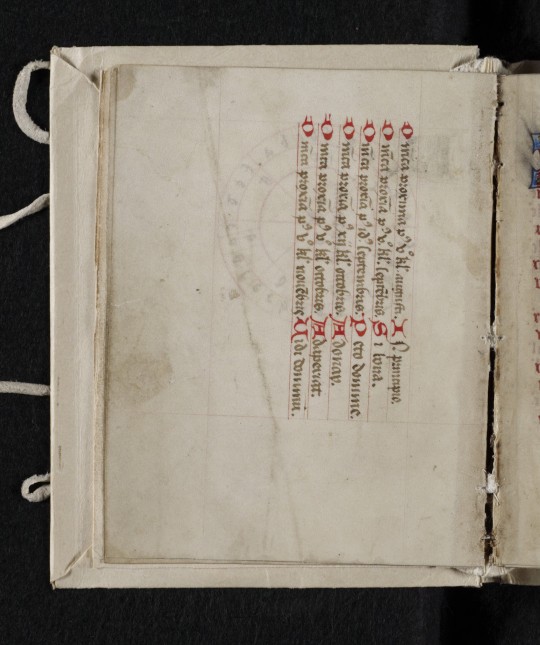 Dnica proxima p⁹ v⁰ kl' augusti. In principio.
Dnica proxia p⁹ v⁰ kl' septebris. Si bona.
Dnica proxia p⁹ id⁹ septembris. Peto domine.
Dnica proxia p⁹ xii kl' octobris. Adonay.
Dnica proxia p⁹ v⁰ kl' octobris. Adaperiat.
Dnica proxia p⁹ v⁰ kl' nouebris. Vidi dominum.